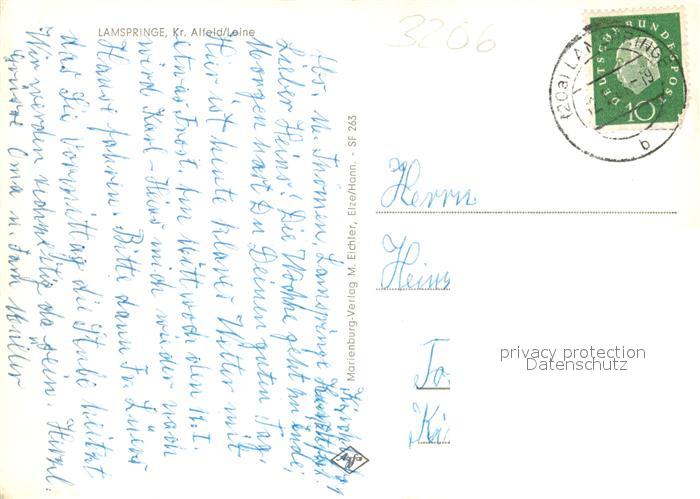 LAMSPRINGE, Kr. Alfeld/Leine
3206
DEUTSCHE BUNDESPOST
10
(20a) LAMSPRINGE
b
Marienburg-Verlag M. Eichler, Elze/Hann. - SF 263
Agfa
Abs. M. Lamspringe
Lieber Heinz! Die Woche geht zu Ende,
Morgen hast Du Deinen guten Tag.
Hier ist heute klares Wetter mit
etwas Frost. Am Mittwoch den 11.I.
wird Karl-Heinz mich wieder nach
Haus fahren. Bitte dann Fr. Lüers
das Sie Vormittag die Stube heitzt
Wir werden rechtzeitig da sein. Herzl.
Grüße Oma u. Fam Müller
Herrn
Heinz
privacy protection
Datenschutz